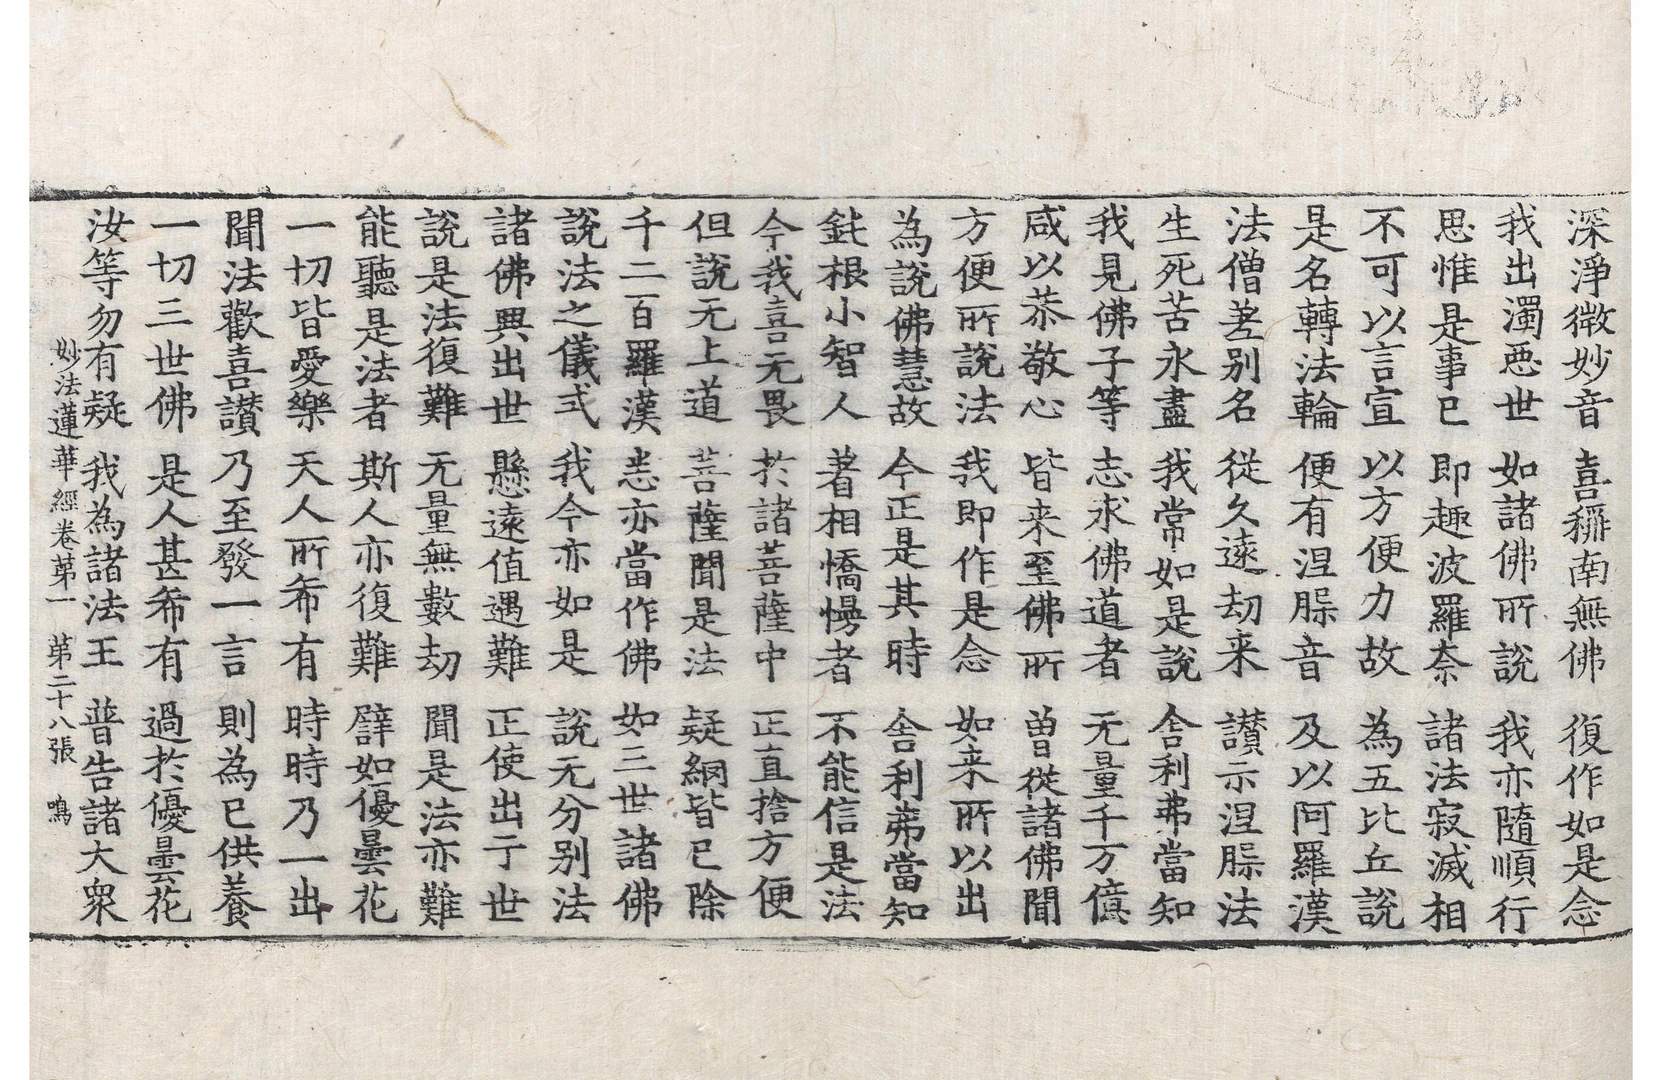 深淨微妙音 喜稱南無佛 復作如是念
我出濁惡世 如諸佛所說 我亦隨順行
思惟是事已 即趣波羅柰 諸法寂滅相
不可以言宣 以方便力故 為五比丘說
是名轉法輪 便有涅槃音 及以阿羅漢
法僧差別名 從久遠劫来 讃示涅槃法
生死苦永盡 我常如是說 舍利弗當知
我見佛子等 志求佛道者 无量千万億
咸以恭敬心 皆来至佛所 曽從諸佛聞
方便所說法 我即作是念 如来所以出
為說佛慧故 今正是其時 舍利弗當知
鈍根小智人 著相憍慢者 不能信是法
今我喜无畏 於諸菩薩中 正直捨方便
但說无上道 菩薩聞是法 疑網皆已除
千二百羅漢 悉亦當作佛 如三世諸佛
說法之儀式 我今亦如是 說无分別法
諸佛興出世 懸遠值遇難 正使出于世
說是法復難 无量無數劫 聞是法亦難
能聽是法者 斯人亦復難 譬如優曇花
一切皆愛樂 天人所希有 時時乃一出
聞法歡喜讃 乃至發一言 則為已供養
一切三世佛 是人甚希有 過於優曇花
汝等勿有疑 我為諸法王 普告諸大眾
妙法蓮華經卷第一 第二十八張 鳴